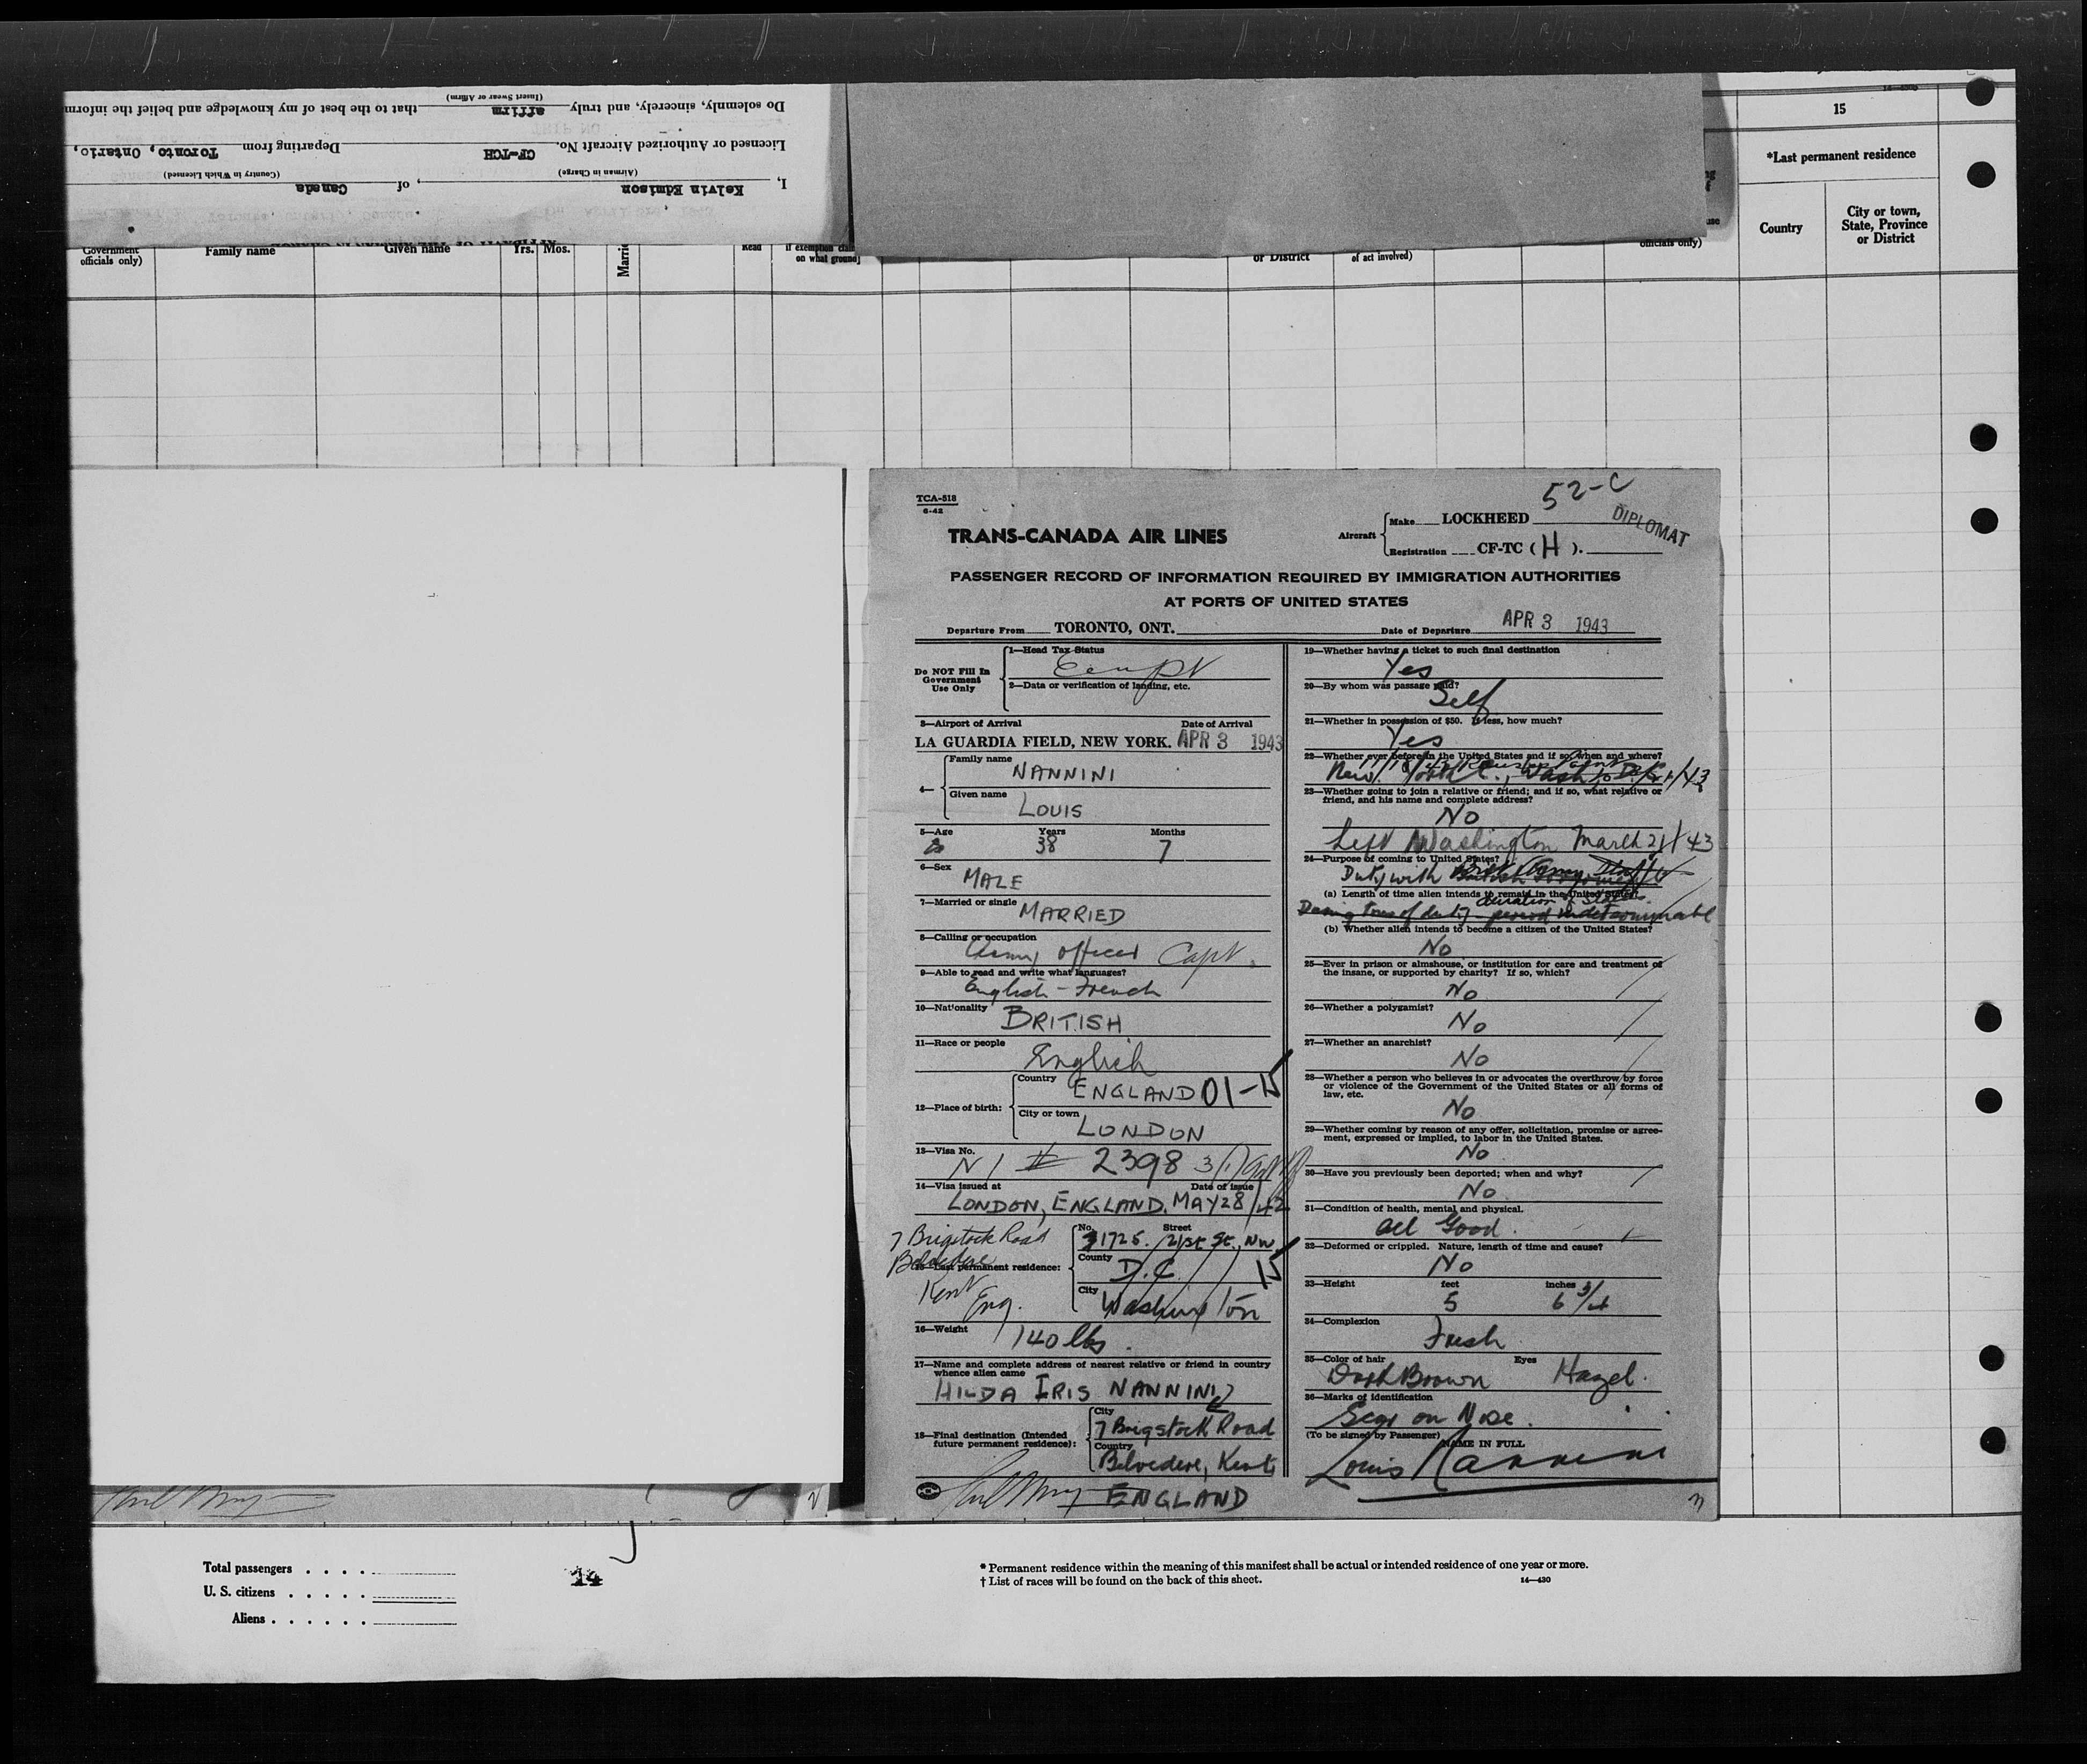 Do solemnly, sincerely, and truly affirm that to the best of my knowledge and belief the inform
(Insert Swear or Affirm)
Licensed or Authorized Aircraft No. CF-TCH Departing from Toronto, Ontario,
I, Kelvin Edmison, of Canada
(Airman in Charge) (Country in Which Licensed)
15
*Last permanent residence
Country
City or town, State, Province or District
Government officials only)
Family name
Given name
Yrs.
Mos.
Read
if exemption
on what ground
or District
of act involved)
officials only)
TCA-518
6-42
52-C
DIPLOMAT
TRANS-CANADA AIR LINES
Aircraft
Make LOCKHEED
Registration CF-TC ( H ).
PASSENGER RECORD OF INFORMATION REQUIRED BY IMMIGRATION AUTHORITIES
AT PORTS OF UNITED STATES
Departure From TORONTO, ONT. Date of Departure APR 3 1943
Do NOT Fill In Government Use Only
1—Head Tax Status
2—Data or verification of landing, etc.
3—Airport of Arrival Date of Arrival
LA GUARDIA FIELD, NEW YORK. APR 3 1943
4—
Family name
NANNINI
Given name
LOUIS
5—Age Years Months
38 7
6—Sex
MALE
7—Married or single
MARRIED
8—Calling or occupation
Army officer Capt.
9—Able to read and write what languages?
English - French
10—Nationality
BRITISH
11—Race or people
English
12—Place of birth:
Country
ENGLAND 01-15
City or town
LONDON
13—Visa No.
2398
14—Visa issued at Date of issue
LONDON, ENGLAND. MAY 28/42
7 Brigstock Road
Belvedere
Kent
Eng.
15—Last permanent residence:
No. Street
1725. 21st St., NW
County
D.C. 15
City
Washington
16—Weight
140 lbs.
17—Name and complete address of nearest relative or friend in country
whence alien came
HILDA IRIS NANNINI
18—Final destination (Intended
future permanent residence):
City
7 Brigstock Road
Country
Belvedere, Kent,
ENGLAND
19—Whether having a ticket to such final destination
Yes
20—By whom was passage paid?
Self
21—Whether in possession of $50. If less, how much?
Yes
22—Whether ever before in the United States and if so, when and where?
New York
23—Whether going to join a relative or friend; and if so, what relative or
friend, and his name and complete address?
No
Left Washington March 21/43
24—Purpose of coming to United States?
Duty with British Army Staff
(a) Length of time alien intends to remain in the United States?
(b) Whether alien intends to become a citizen of the United States?
No
25—Ever in prison or almshouse, or institution for care and treatment of
the insane, or supported by charity? If so, which?
No
26—Whether a polygamist?
No
27—Whether an anarchist?
No
28—Whether a person who believes in or advocates the overthrow by force
or violence of the Government of the United States or all forms of
law, etc.
No
29—Whether coming by reason of any offer, solicitation, promise or agree-
ment, expressed or implied, to labor in the United States.
No
30—Have you previously been deported; when and why?
No
31—Condition of health, mental and physical.
All Good.
32—Deformed or crippled. Nature, length of time and cause?
No
33—Height feet inches
5 6 3/4
34—Complexion
Fresh
35—Color of hair Eyes
Dark Brown Hazel.
36—Marks of identification
Scar on Nose.
(To be signed by Passenger) NAME IN FULL
Louis Nannini
3
Total passengers
U. S. citizens
Aliens
14
* Permanent residence within the meaning of this manifest shall be actual or intended residence of one year or more.
† List of races will be found on the back of this sheet.
14—430